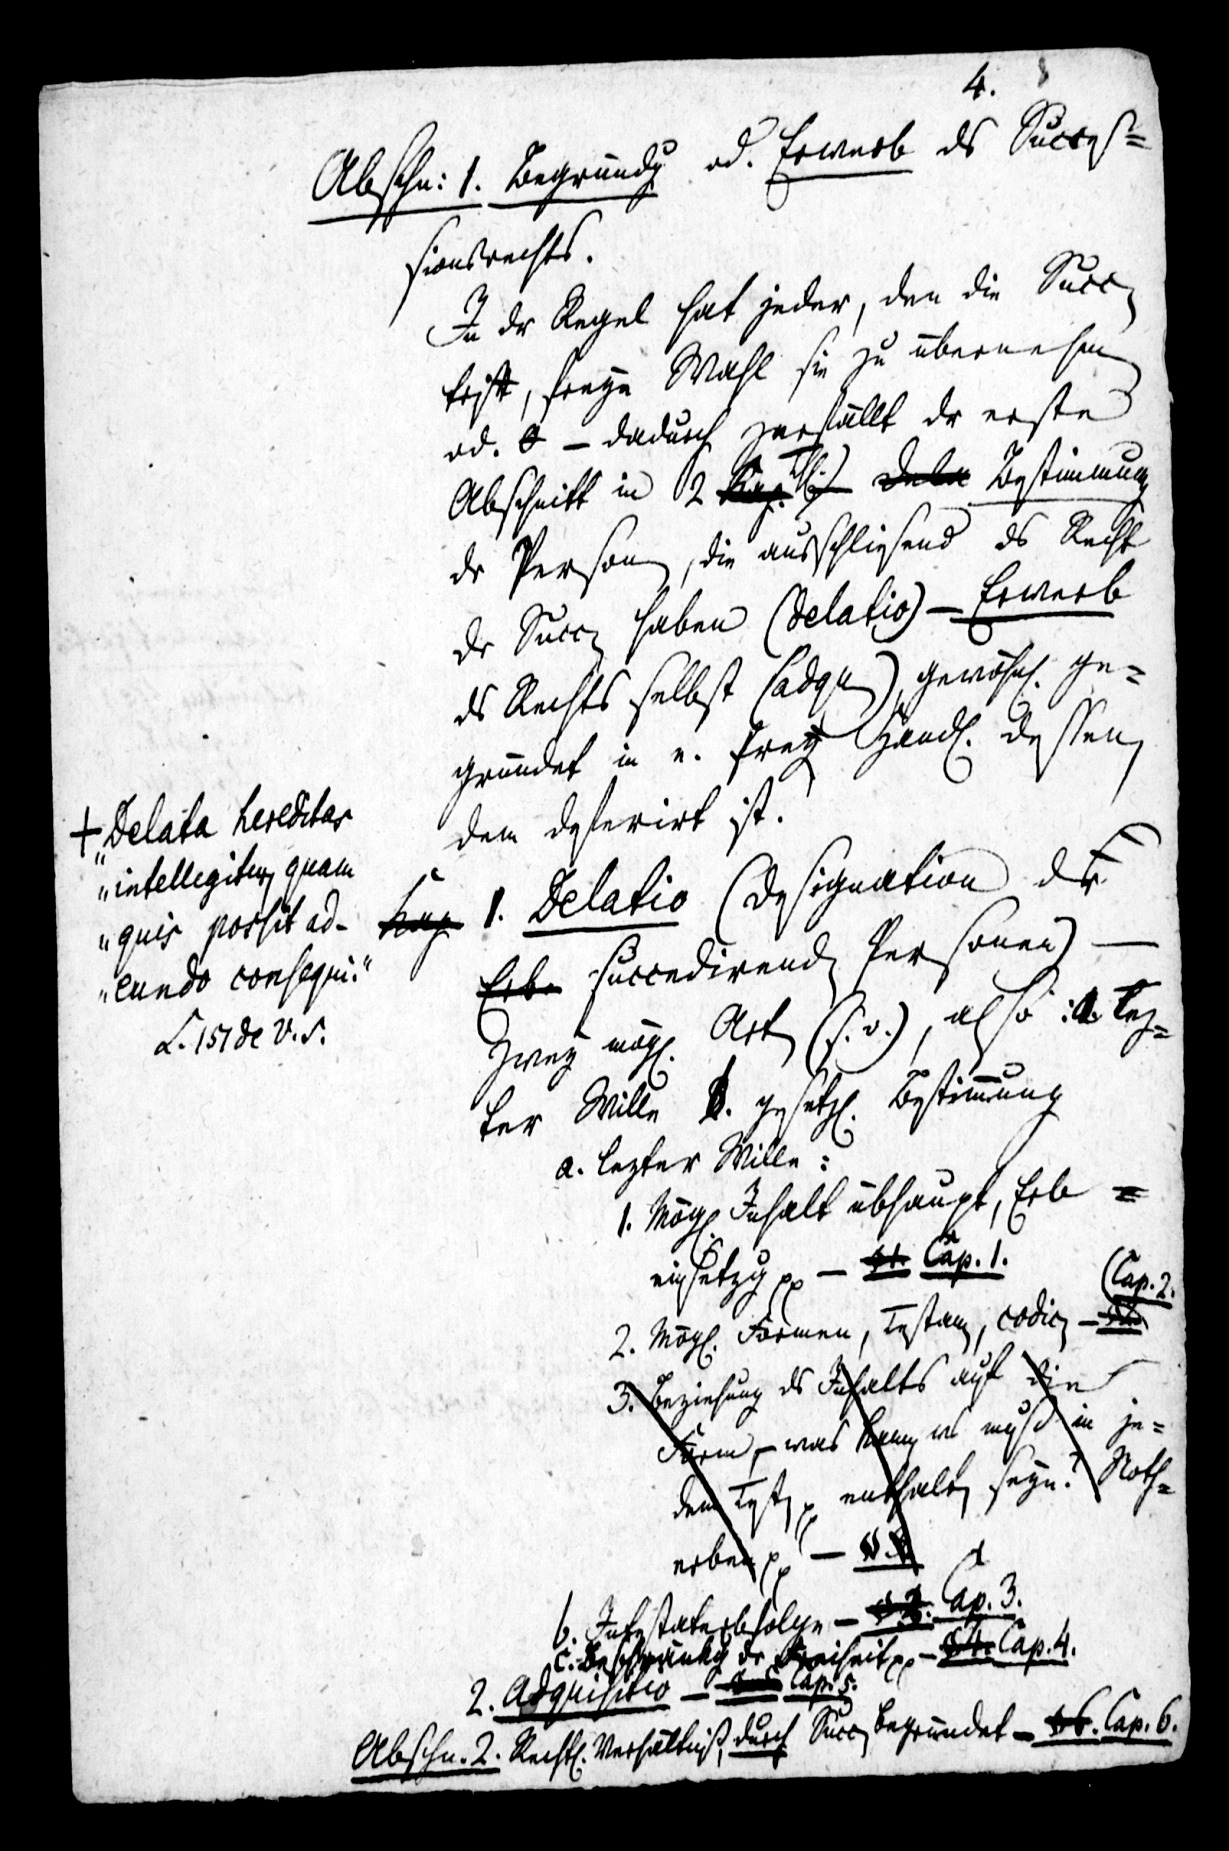 4.
Abschn: 1. Begründg od. Erwerb ds Succes=
sionsrechts.
In dr Regel hat jeder, den die Succ
trifft, freye Wahl sie zu übernehm
od. 0 – dadurch zerfällt dr erste
Abschnitt in 2 Bestimmung
dr Person, die ausschliesend ds Recht
dr Succ haben (delatio) – Erwerb
ds Rechts selbst (adqu), gewöhnl. ge=
gründet in e. frey Handl. dessen,
dem deferirt ist.
+ Delata hereditas
"intellegitur, quam
"quis possit ad-
"eundo consequi."
L. 151 de V. S.
Kap 1. Delatio (Designation der
Erb. succedirend Personen) —
Zwey mögl. Art (s. o.), also: a. lez=
ter Wille b. gesetzl. Bestimmung
a. lezter Wille:
1. Mögl. Inhalt übhaupt, Erb=
einsetzg pp — Cap. 1.
2. Mögl. Formen, Testam, codic — Cap. 2.
3. Beziehung ds Inhalts auf die
Form, – was kann us muß in je=
dem Test p enthalt seyn? Noth=
erben pp —
b. Intestaterbfolge — Cap. 3.
c. Beschränkg dr Freiheit pp — Cap. 4.
2. Adquisitio — Cap. 5.
Abschn. 2. Rechtl. Verhältniß, durch Succ begründet — Cap. 6.